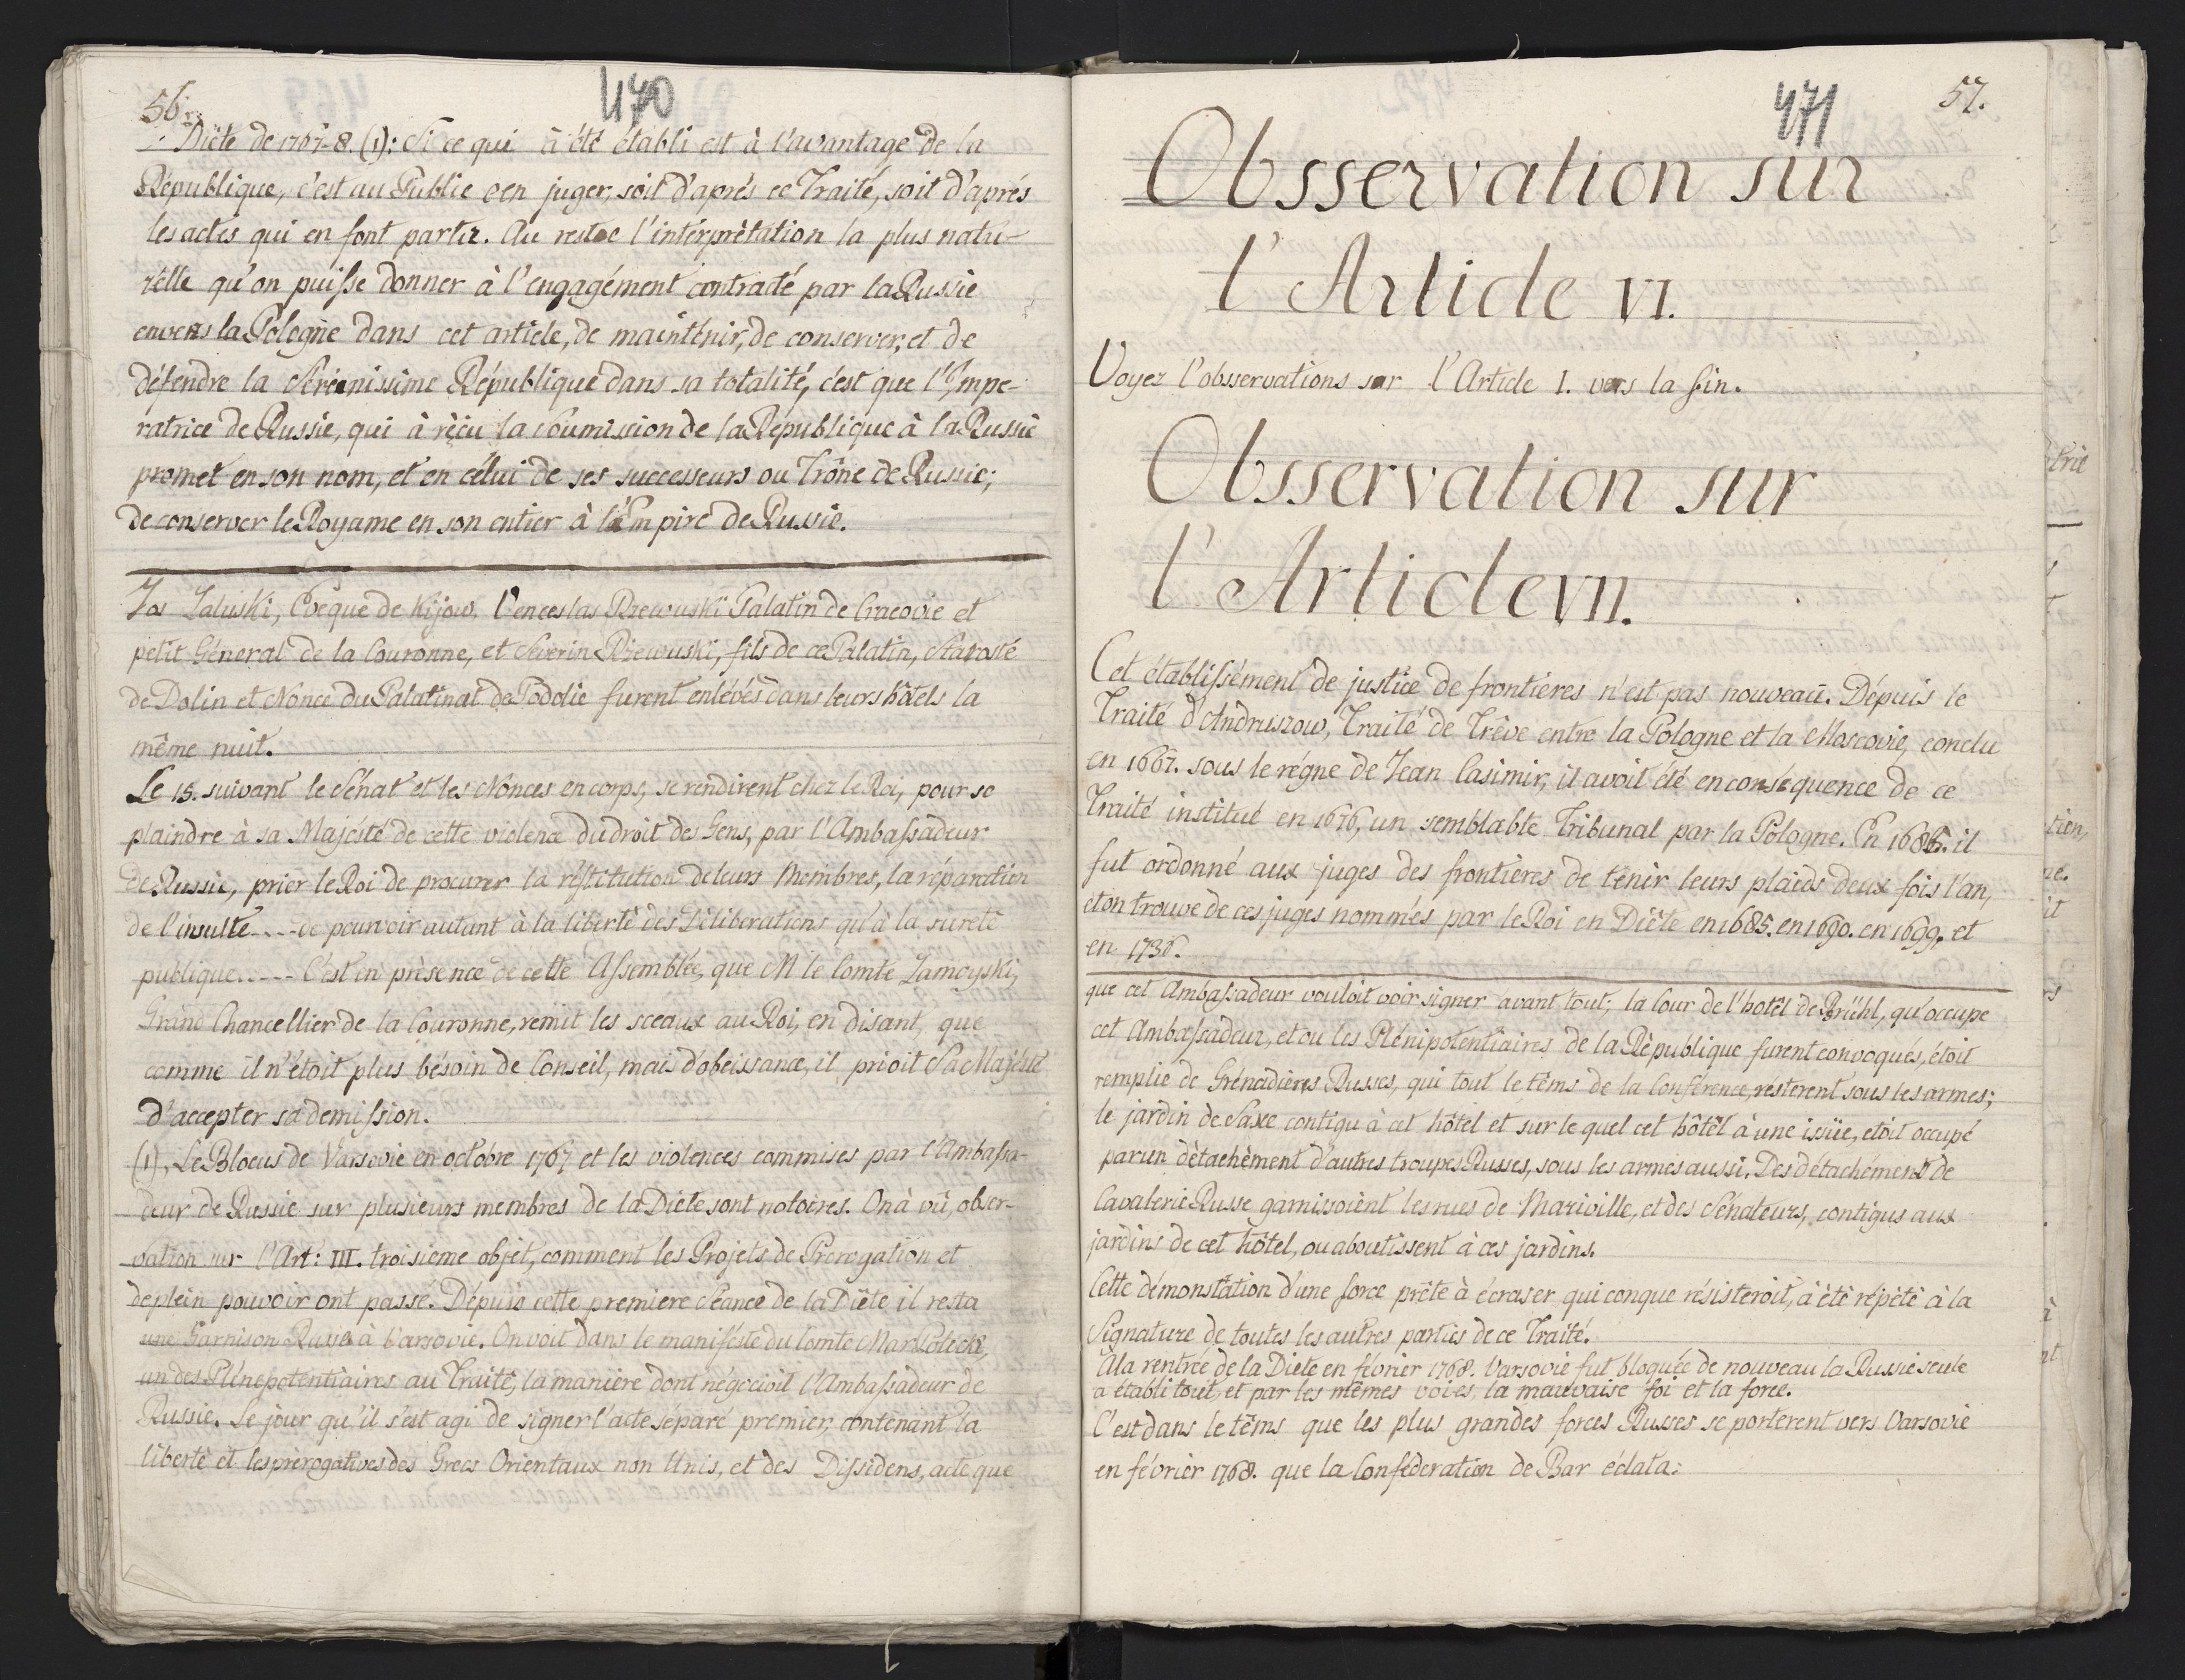 56.
470
Diéte de 1767-8. (1): Si ce qui à été établi est à l'avantage de la
République, c'est au Public d'en juger, soit d'aprés ce Traité, soit d'aprés
les actes qui en font partie. Au reste l'intérprétation la plus natu-
rélle qu'on puisse donner à l'engagément contracté par la Russie
envers la Pologne dans cet article, de mainténir, de conserver, et de
défendre la Sérénissime République dans sa totalité, c'est que l'Impe-
ratrice de Russie, qui à réçu la soumission de la République à la Russie
promet en son nom, et en célui de ses successeurs ou Trône de Russie;
de conserver le Royame en son entier à l'Empire de Russie.
Jos Zaluski, Evêque de Kijow, Venceslas Rzewuski Palatin de Cracovie et
petit Géneral de la Couronne, et Séverin Rzewuski, fils de ce Palatin, Staroste
de Dolin et Nonce du Palatinat de Podolie furent enlévés dans leurs hôtels la
même nuit.
Le 15. suivant le Sénat et les Nonces en corps, se rendirent chez le Roi, pour se
plaindre à sa Majésté de cette violence du droit des Gens, par l'Ambassadeur
de Russie, prier le Roi de procurer la réstitution de leurs Membres, la réparation
de l'insulte.... de pourvoir autant à la liberté des Déliberations qu'à la sureté
publique..... C'est en présence de cette Assemblée, que M le Comte Zamoyski,
Grand Chancellier de la Couronne, remit les sceaux au Roi, en disant, que
comme il n'étoit plus bésoin de Conseil, mais d'obeissance, il prioit Sa Majésté
d'accepter sa demission.
(1), Le Blocus de Varsovie en octobre 1767 et les violences commises par l'Ambassa-
deur de Russie sur plusieurs membres de la Diéte sont notoires. On à vû, obser-
vation sur l'Art: III. troisieme objet, comment les Projets de Prorogation et
de plein pouvoir ont passé. Dépuis cette premiere Séance de la Diéte il resta
une Garnison Russe à Varsovie. On voit dans le maniféste du Comte
un des Plénepotentiaires au Traité, la maniere dont négocioit l'Ambassadeur de
Russie. Le jour qu'il s'est agi de signer l'acte séparé premier, contenant la
liberté et les prérogatives des Grecs Orientaux non Unis, et des Dissidens, acte que
471
57.
Obsservation sur
l'Article VI.
Voyez l'obsservations sur l'Article I. vers la fin.
Obsservation sur
l'Article VII.
Cet établissément de justice de frontieres n'est pas nouveau. Dépuis le
Traité d'Andruszow, Traité de Trêve entre la Pologne et la Moscovie, conclu
en 1667. sous le régne de Jean Casimir, il avoit été en conséquence de ce
Traité institué en 1676, un semblable Tribunal par la Pologne. En 1685. il
fut ordonné aux juges des frontieres de ténir leurs plaids deux fois l'an,
et on trouve de ces juges nommés par le Roi en Diéte en 1685. en 1690. en 1699. et
en 1736.
que cet Ambassadeur vouloit voir signer avant tout; la Cour de l'hotêl de Brühl, qu'occupe
cet Ambassadeur, et ou les Plénipotentiaires de la République furent convoqués, étoit
remplie de Grénadières Russes, qui tout le têms de la Conférence, resterent sous les armes;
le jardin de Saxe contigu à cet hôtel et sur le quel cet hôtêl à une issüe, etoit occupé
par un détachèment d'autres troupes Russes, sous les armes aussi. Des détachéments de
Cavalerie Russe garnissoient les rues de Mariville, et des Sénateurs, contigus aux
jardins de cet hôtel, ou aboutissent à ces jardins.
Cette démonstation d'une force prête à écraser qui conque résisteroit, à été répété à la
Signature de toutes les autres parties de ce Traité.
A la rentrée de la Diete en février 1768. Varsovie fut bloquée de nouveau la Russie seule
a établi tout, et par les mêmes voies, la mauvaise foi et la force.
C'est dans le têms que les plus grandes forces Russes se porterent vers Varsovie
en février 1768. que la Conféderation de Bar éclata: